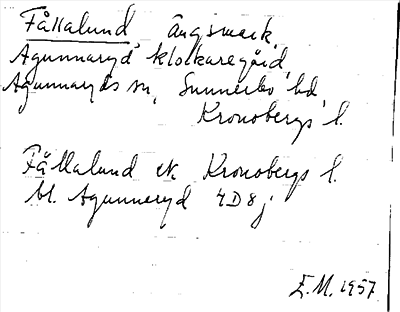 Fållalund ängsmark,
Agunnaryd klockaregård,
Agunnaryds sn, Sunnerbo hd
Kronobergs l.
Fållalund ek. Kronobergs l.
bl. Agunneryd 4D8j
E.M. 1957